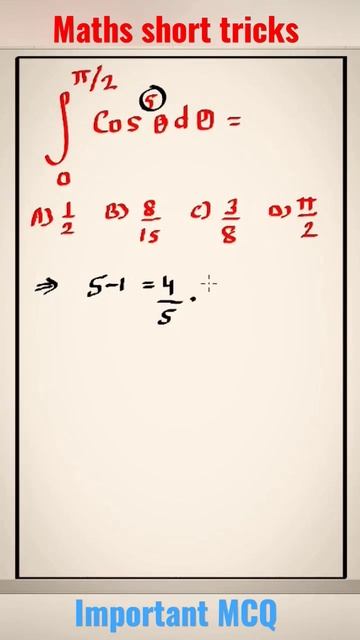 Maths short tricks
∫₀^π/2 Cos⁵ θ d θ =
A) 1/2 B) 8/15 C) 3/8 D) π/2
⇒ 5-1 = 4/5 .
Important MCQ